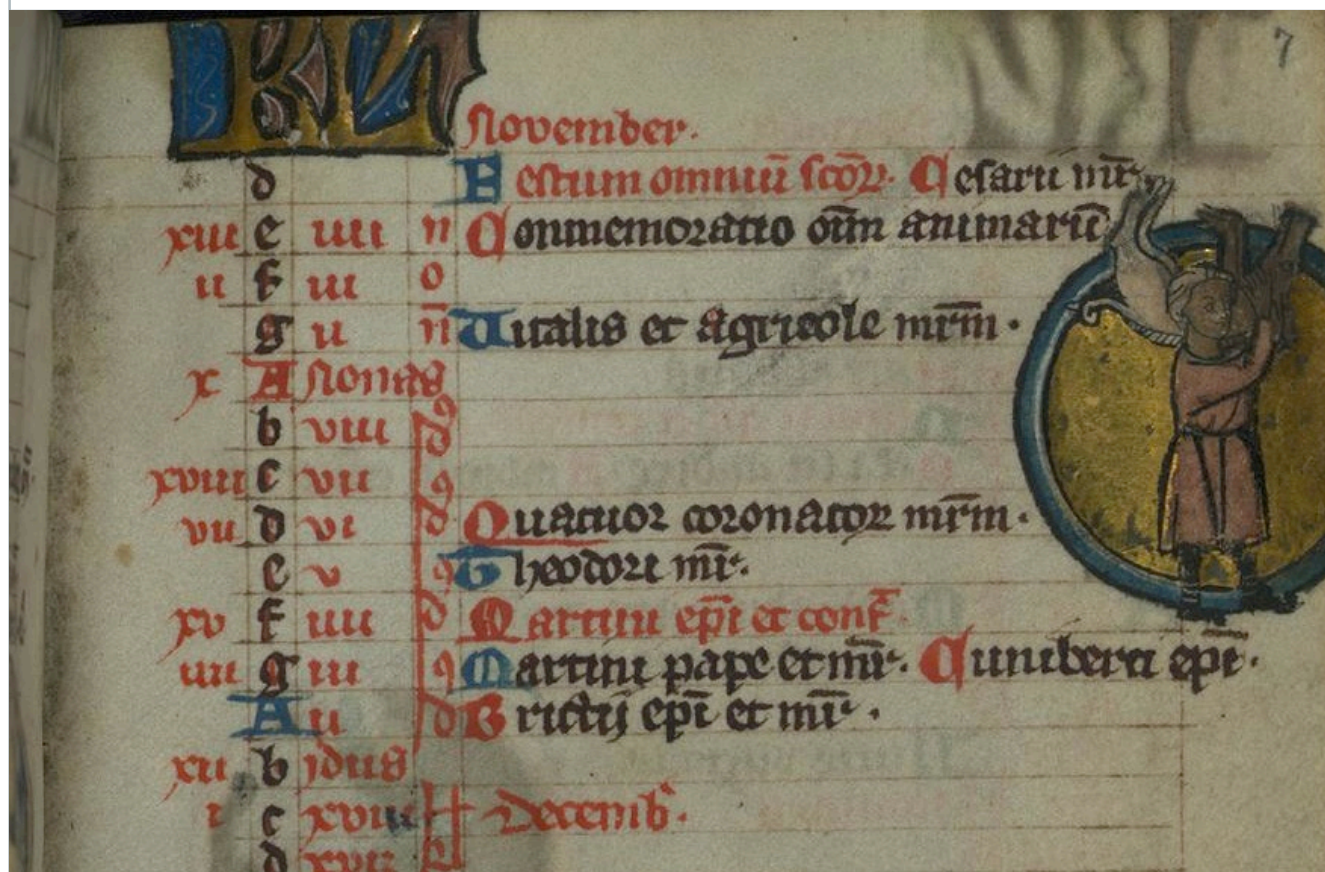 7
KL
November.
d Festum omniū scōꝝ. Cesarii mr̄.
xiii e iiii n Conmemoratio oīm animariū
ii f iii o
g ii n̄ Vitalis et agricole mr̄m.
x A Nonas
b viii
xviii c vii
vii d vi Quatuor coronatoꝝ mr̄m.
e v Theodori mr̄.
xv f iiii Martini ep̄i et conf̄.
iiii g iii Martini pape et mr̄. Cuniberti ep̄i.
A ii Brictij ep̄i et mr̄.
xii b idus
i c xviii kl Decemb̓.
d xvii